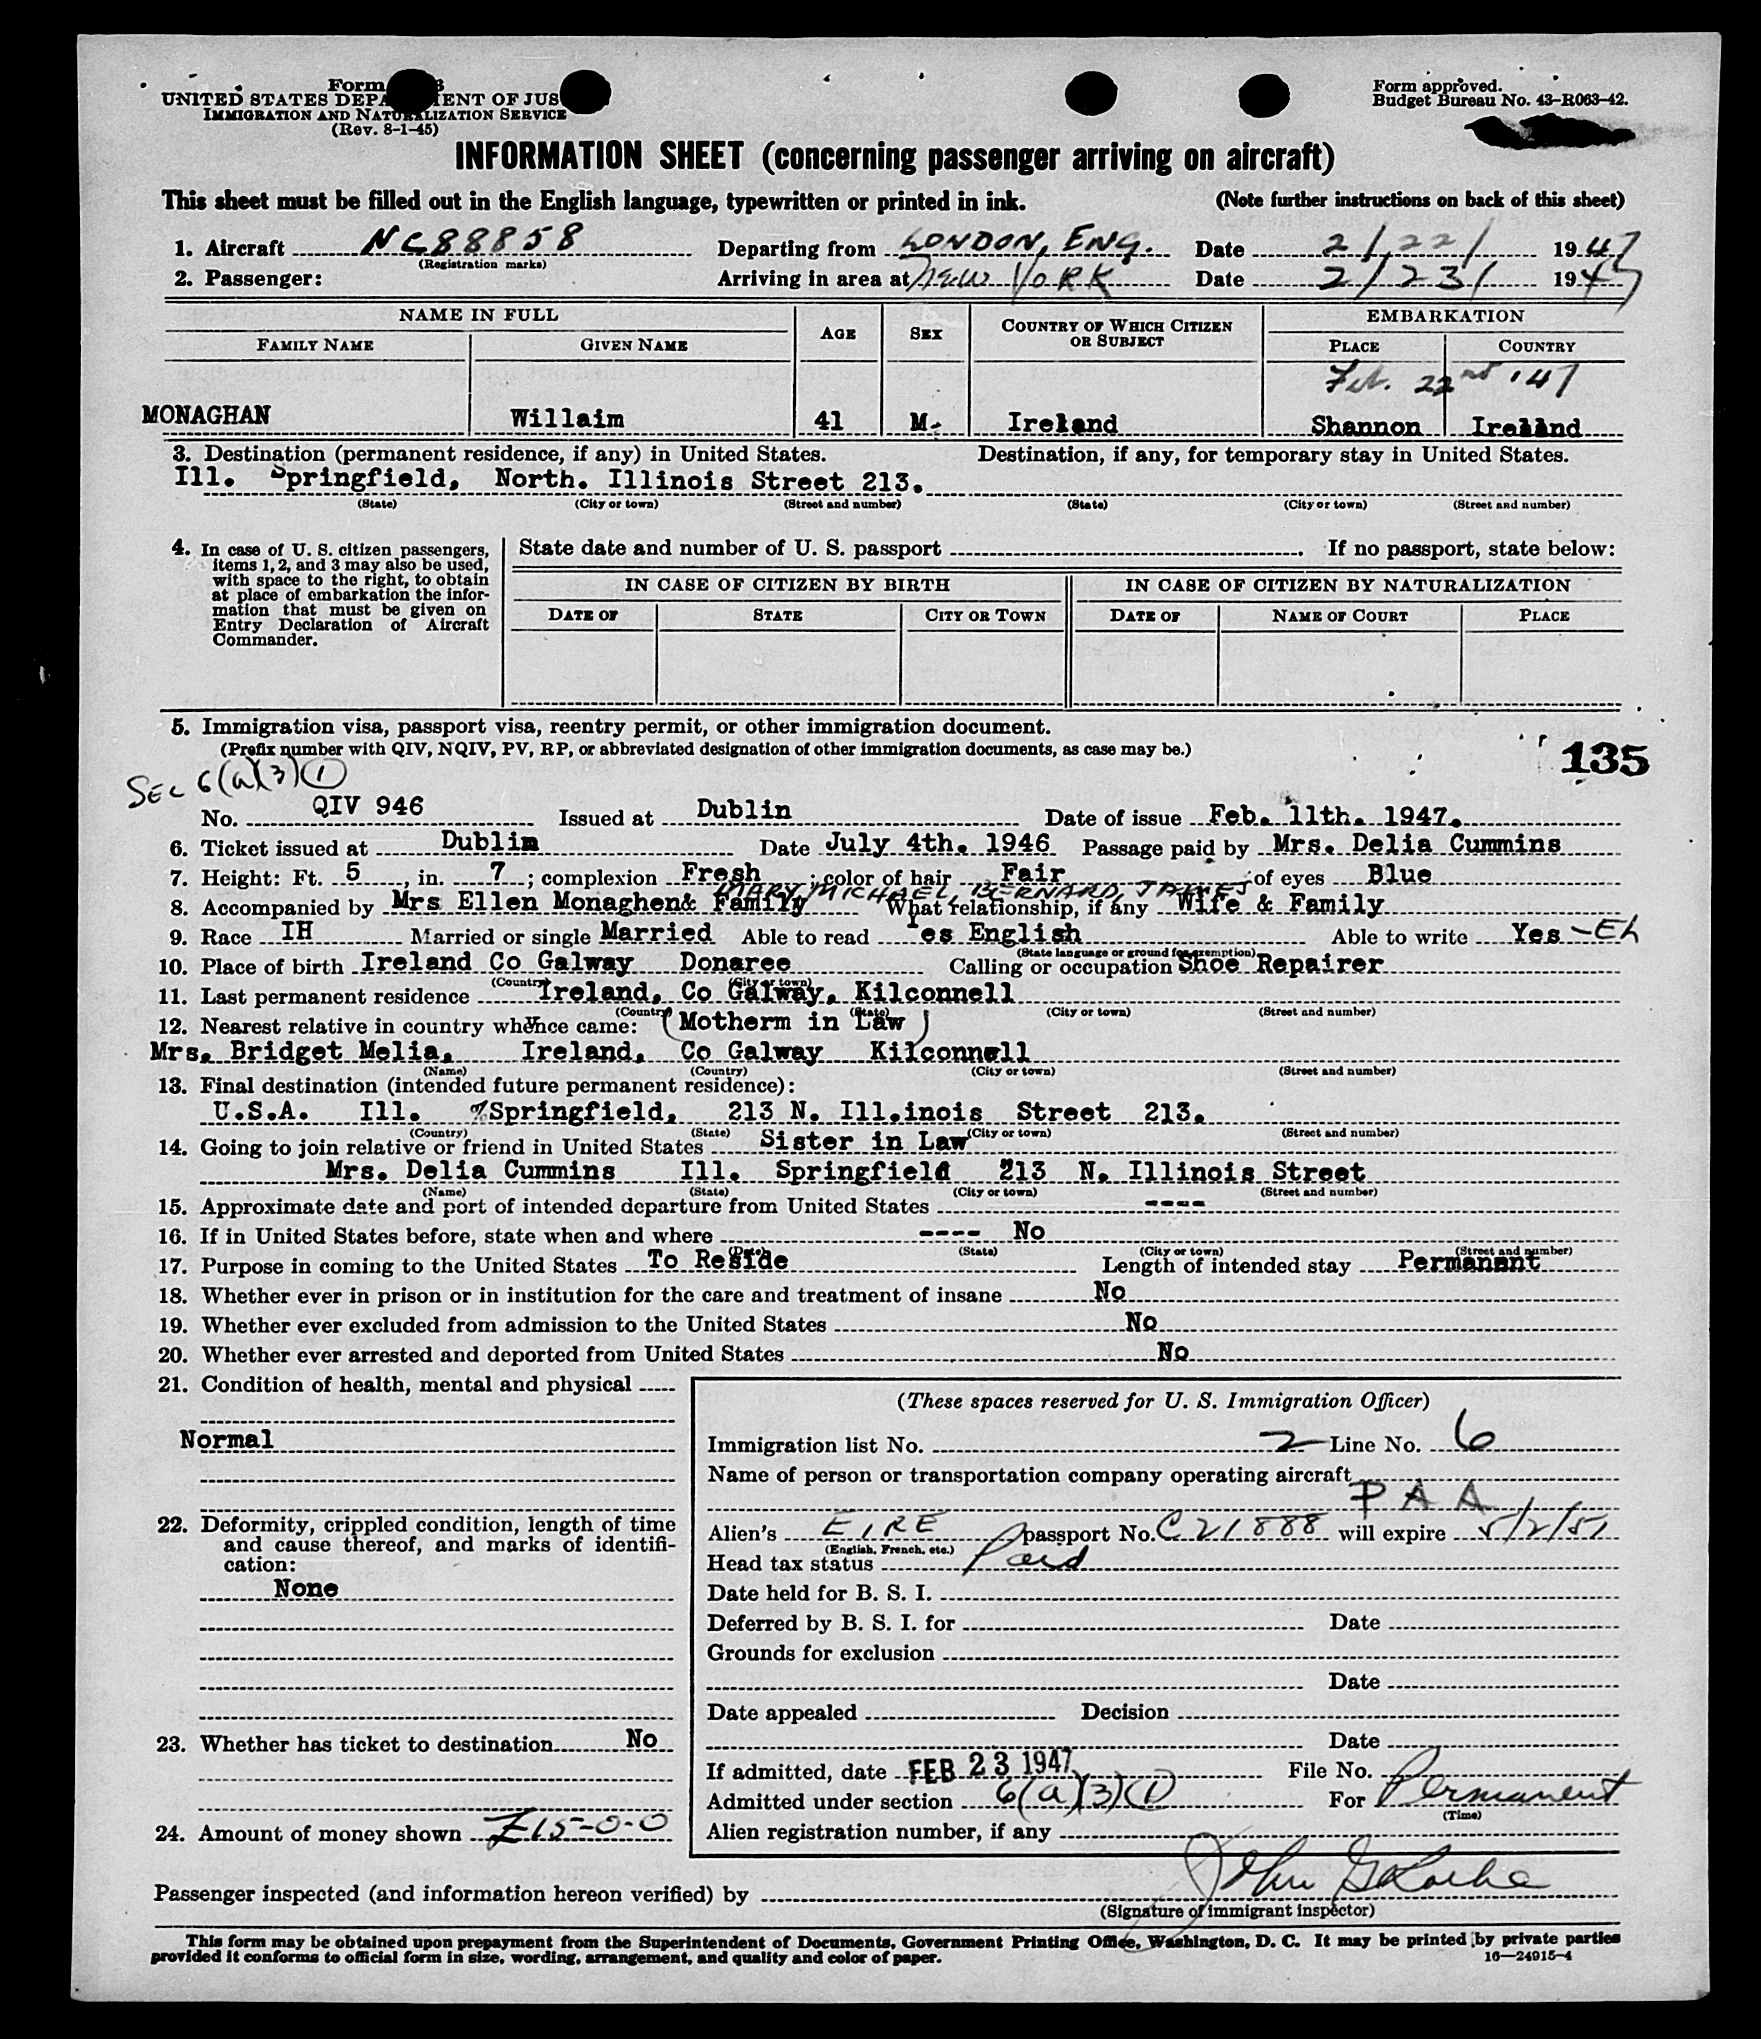 Form
UNITED STATES DEPA ENT OF JUS
IMMIGRATION AND NATURALIZATION SERVICE
(Rev. 8-1-45)
Form approved.
Budget Bureau No. 43-R063-42.
INFORMATION SHEET (concerning passenger arriving on aircraft)
This sheet must be filled out in the English language, typewritten or printed in ink. (Note further instructions on back of this sheet)
1. Aircraft NC88858 Departing from LONDON, ENG. Date 2/22/ 1947
(Registration marks)
2. Passenger: Arriving in area at New York Date 2/23/ 1947
NAME IN FULL AGE SEX COUNTRY OF WHICH CITIZEN OR SUBJECT EMBARKATION
FAMILY NAME GIVEN NAME PLACE COUNTRY
Feb. 22nd '47
MONAGHAN Willaim 41 M. Ireland Shannon Ireland
3. Destination (permanent residence, if any) in United States. Destination, if any, for temporary stay in United States.
Ill. Springfield, North. Illinois Street 213.
(State) (City or town) (Street and number) (State) (City or town) (Street and number)
4. In case of U. S. citizen passengers, items 1, 2, and 3 may also be used, with space to the right, to obtain at place of embarkation the information that must be given on Entry Declaration of Aircraft Commander.
State date and number of U. S. passport . If no passport, state below:
IN CASE OF CITIZEN BY BIRTH IN CASE OF CITIZEN BY NATURALIZATION
DATE OF STATE CITY OR TOWN DATE OF NAME OF COURT PLACE
5. Immigration visa, passport visa, reentry permit, or other immigration document.
(Prefix number with QIV, NQIV, PV, RP, or abbreviated designation of other immigration documents, as case may be.)
135
SEC 6(a)(3)(1)
No. QIV 946 Issued at Dublin Date of issue Feb. 11th. 1947.
6. Ticket issued at Dublin Date July 4th. 1946 Passage paid by Mrs. Delia Cummins
7. Height: Ft. 5, in. 7; complexion Fresh; color of hair Fair of eyes Blue
MARY, MICHAEL, BERNARD, JAMES
8. Accompanied by Mrs Ellen Monaghen& Family What relationship, if any Wife & Family
9. Race IH Married or single Married Able to read Yes English Able to write Yes - Eh
(State language or ground for exemption)
10. Place of birth Ireland Co Galway Donaree Calling or occupation Shoe Repairer
(Country) (City or town)
11. Last permanent residence Ireland, Co Galway, Kilconnell
(Country) (State) (City or town) (Street and number)
12. Nearest relative in country whence came: (Motherm in Law)
Mrs. Bridget Melia, Ireland, Co Galway Kilconnell
(Name) (Country) (City or town) (Street and number)
13. Final destination (intended future permanent residence):
U.S.A. Ill. %Springfield, 213 N. Ill.inois Street 213.
(Country) (State) (City or town) (Street and number)
14. Going to join relative or friend in United States Sister in Law
Mrs. Delia Cummins Ill. Springfield 213 N. Illinois Street
(Name) (State) (City or town) (Street and number)
15. Approximate date and port of intended departure from United States ----
16. If in United States before, state when and where ---- No
(Date) (State) (City or town) (Street and number)
17. Purpose in coming to the United States To Reside Length of intended stay Permanant
18. Whether ever in prison or in institution for the care and treatment of insane No
19. Whether ever excluded from admission to the United States No
20. Whether ever arrested and deported from United States No
21. Condition of health, mental and physical
Normal
22. Deformity, crippled condition, length of time and cause thereof, and marks of identification:
None
23. Whether has ticket to destination No
24. Amount of money shown £15-0-0
(These spaces reserved for U. S. Immigration Officer)
Immigration list No. 2 Line No. 6
Name of person or transportation company operating aircraft
PAA
Alien's EIRE passport No. C21888 will expire 5/2/51
(English, French, etc.)
Head tax status Paid
Date held for B. S. I.
Deferred by B. S. I. for Date
Grounds for exclusion
Date
Date appealed Decision
Date
If admitted, date FEB 23 1947 File No.
Admitted under section 6(a)(3)(1) For Permanent
(Time)
Alien registration number, if any
Passenger inspected (and information hereon verified) by John
(Signature of immigrant inspector)
This form may be obtained upon prepayment from the Superintendent of Documents, Government Printing Office, Washington, D. C. It may be printed by private parties
provided it conforms to official form in size, wording, arrangement, and quality and color of paper. 16—24915-4